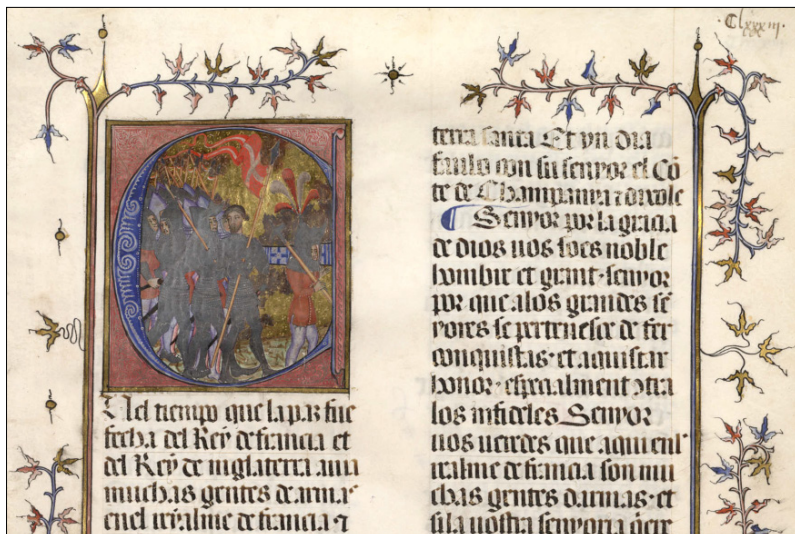 Clxxxiij.
Nel tiempo que la paz fue
fecha del Rey de francia et
del Rey de inglaterra auia
muchas gentes darmas
enel reyalme de francia ⁊
terra santa Et vn dia
faulo con su senyor el Cõ
te de Champanya ⁊ dixole
Senyor por la gracia
de dios uos soes noble
hombre et grant senyor
por que alos grandes se
nyores se pertenesce de fer
conquistas et aquistar
honor especialment ɔtra
los infideles Senyor
uos ueedes que aqui enl
realme de francia son mu
chas gentes darmas et
si la uostra senyoria q̃ere